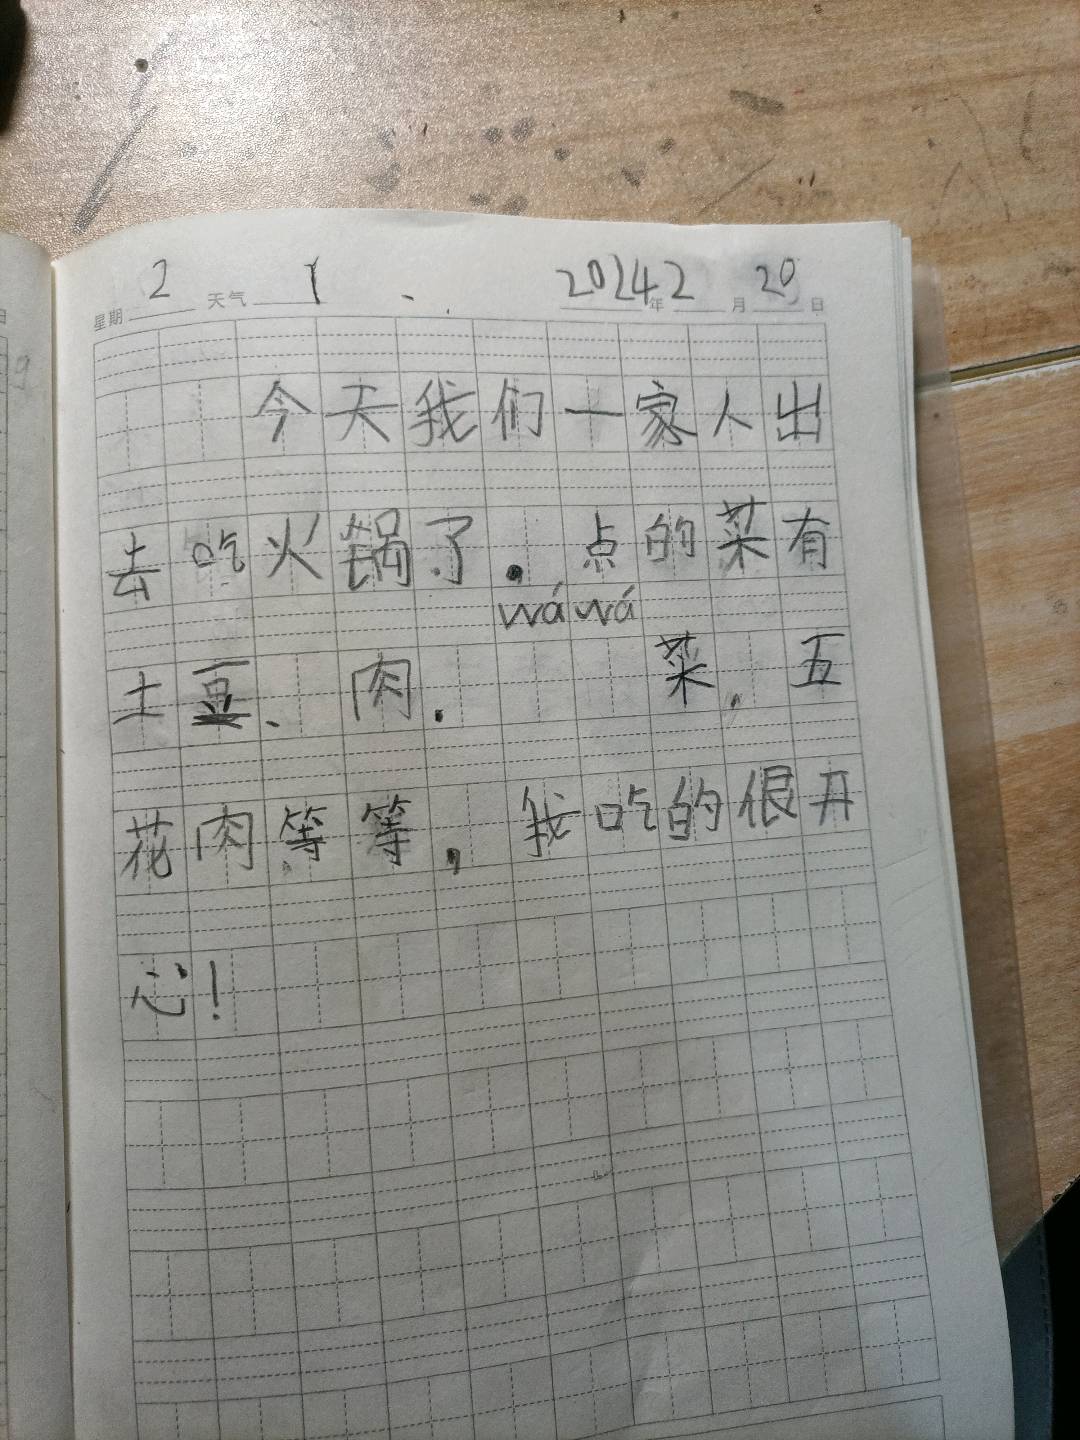 星期 2 天气 1 2024年2月20日
今天我们一家人出
去吃火锅了.点的菜有
wáwá
土豆、肉.菜,五
花肉等等,我吃的很开
心!